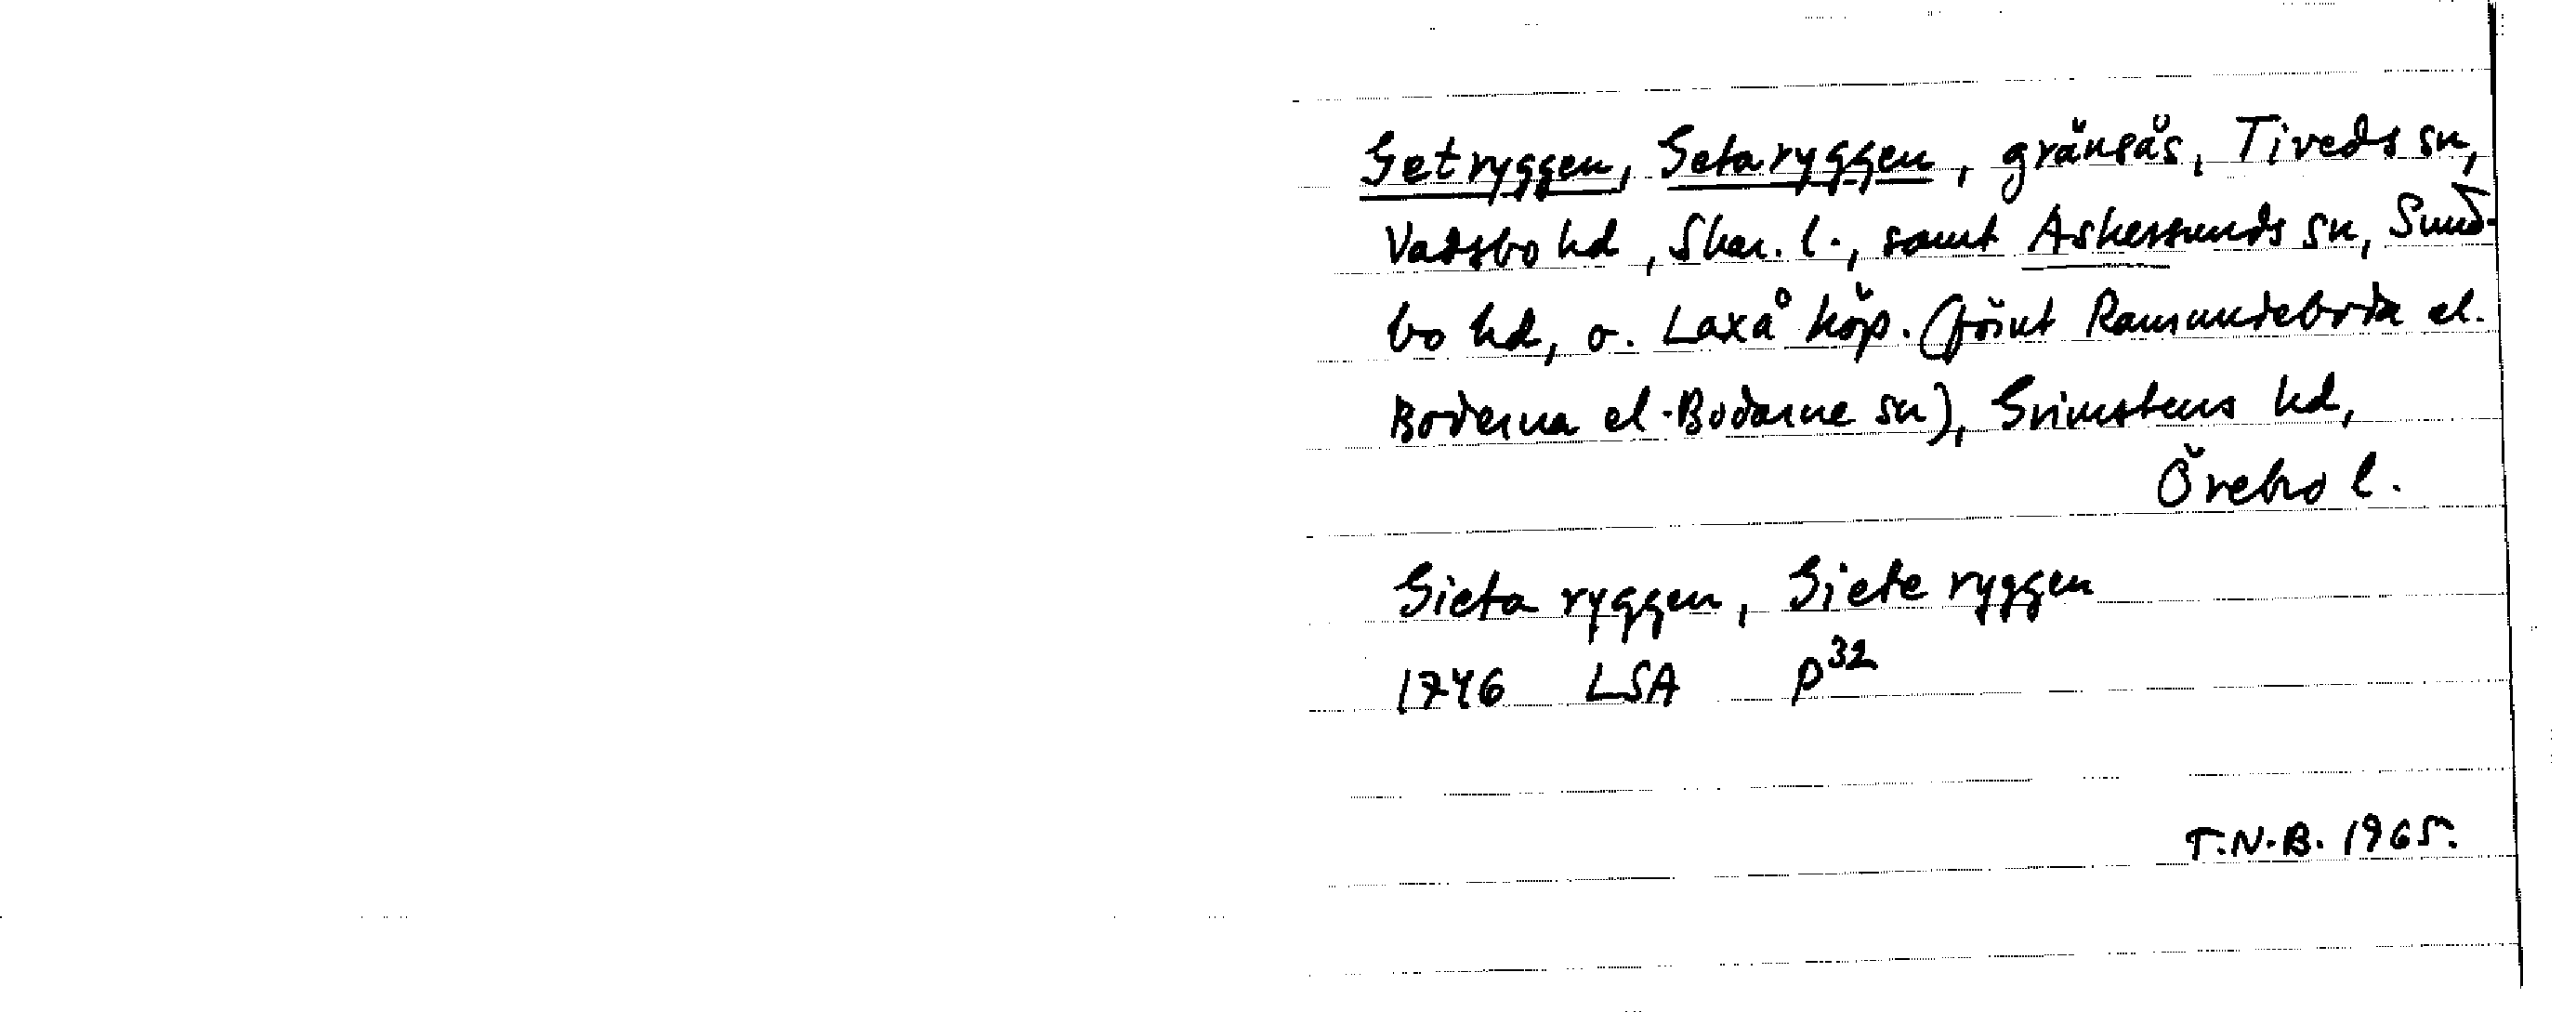 Getryggen, Getaryggen, gränsås, Tiveds sn,
Vadsbo hd, Skar. l., samt Askersunds sn, Sund-
bo hd, o. Laxå köp. (förut Ramundeboda el.
Boderna el. Bodarne sn), Grimstens hd,
Örebro l.
Gieta ryggen, Giete ryggen
1746 LSA P32
T.N.B. 1965.